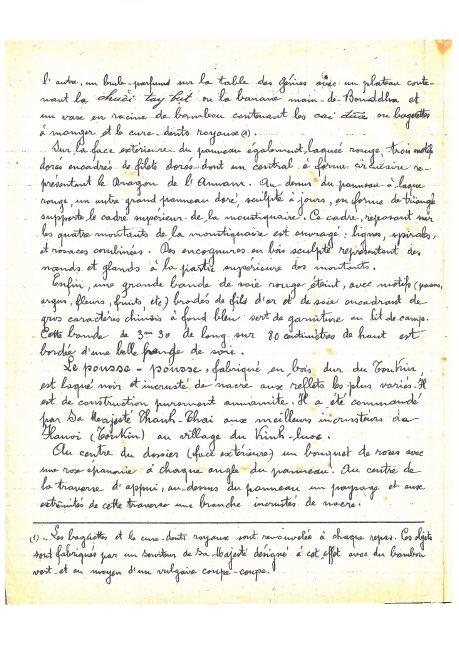 l'autre, un brule-parfums sur la table des Génies avec un plateau conte-
nant la chuôi tay but ou la banane main-de-Bouddha et
un vase en racine de bambou contenant les cai dũa ou baguettes
à manger et le cure-dents royaux (1).
Sur la face extérieure du panneau également laquée rouge, trois motifs
dorés encadrés de filets dorés dont un central à forme circulaire re-
présentant le Dragon de l'Annam. Au-dessus du panneau à laque
rouge, un autre grand panneau doré, sculpté à jours, en forme de triangle
supporte le cadre supérieur de la moustiquaire. Ce cadre, reposant sur
les quatre montants de la moustiquaire est ouvragé: lignes, spirales,
et rosaces combinées. Des encognures en bois sculpté représentent des
nœuds et glands à la partie supérieure des montants.
Enfin, une grande bande de soie rouge éteint, avec motifs (paons,
fleurs, fruits, etc) brodés de fils d'or et de soie encadrant de
gros caractères chinois à fond bleu sert de garniture au lit de camp.
Cette bande de 3m30 de long sur 80 centimètres de haut est
bordée d'une belle frange de soie.
Le pousse-pousse, fabriqué en bois dur du Tonkin,
est laqué noir et incrusté de nacre aux reflets les plus variés. Il
est de construction purement annamite. Il a été commandé
par Sa Majesté Thanh-Thai aux meilleurs incrusteurs de
Hanoi (Tonkin) au village du Vinh-luoc.
Au centre du dossier (face extérieure) un bouquet de roses avec
une rose épanouie à chaque angle du panneau. Au centre de
la traverse d'appui, au-dessus du panneau un paysage et aux
extrémités de cette traverse une branche incrustés de nacre.
(1) - Les baguettes et le cure-dents royaux sont renouvelés à chaque repas. Ces objets
sont fabriqués par un serviteur de Sa Majesté désigné à cet effet avec du bambou
vert et au moyen d'un vulgaire coupe-coupe.